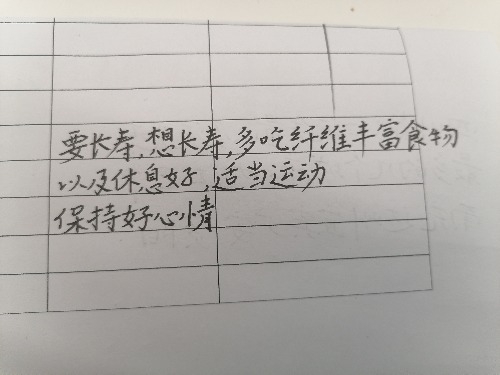 要长寿,想长寿,多吃纤维丰富食物
以及休息好,适当运动
保持好心情